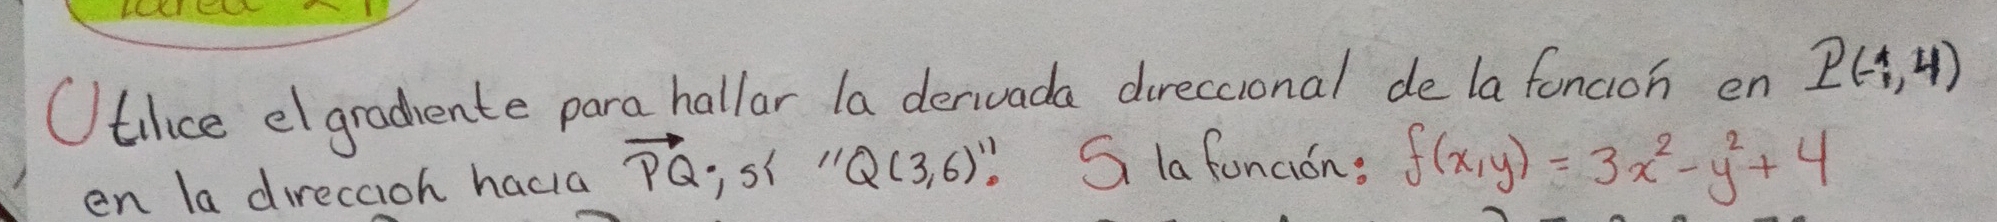 Tarea
Utilice el gradiente para hallar la derivada direccional de la función en P(-1,4)
en la dirección hacia PQ; si "Q(3,6)". Si la función: f(x,y) = 3x² - y² + 4